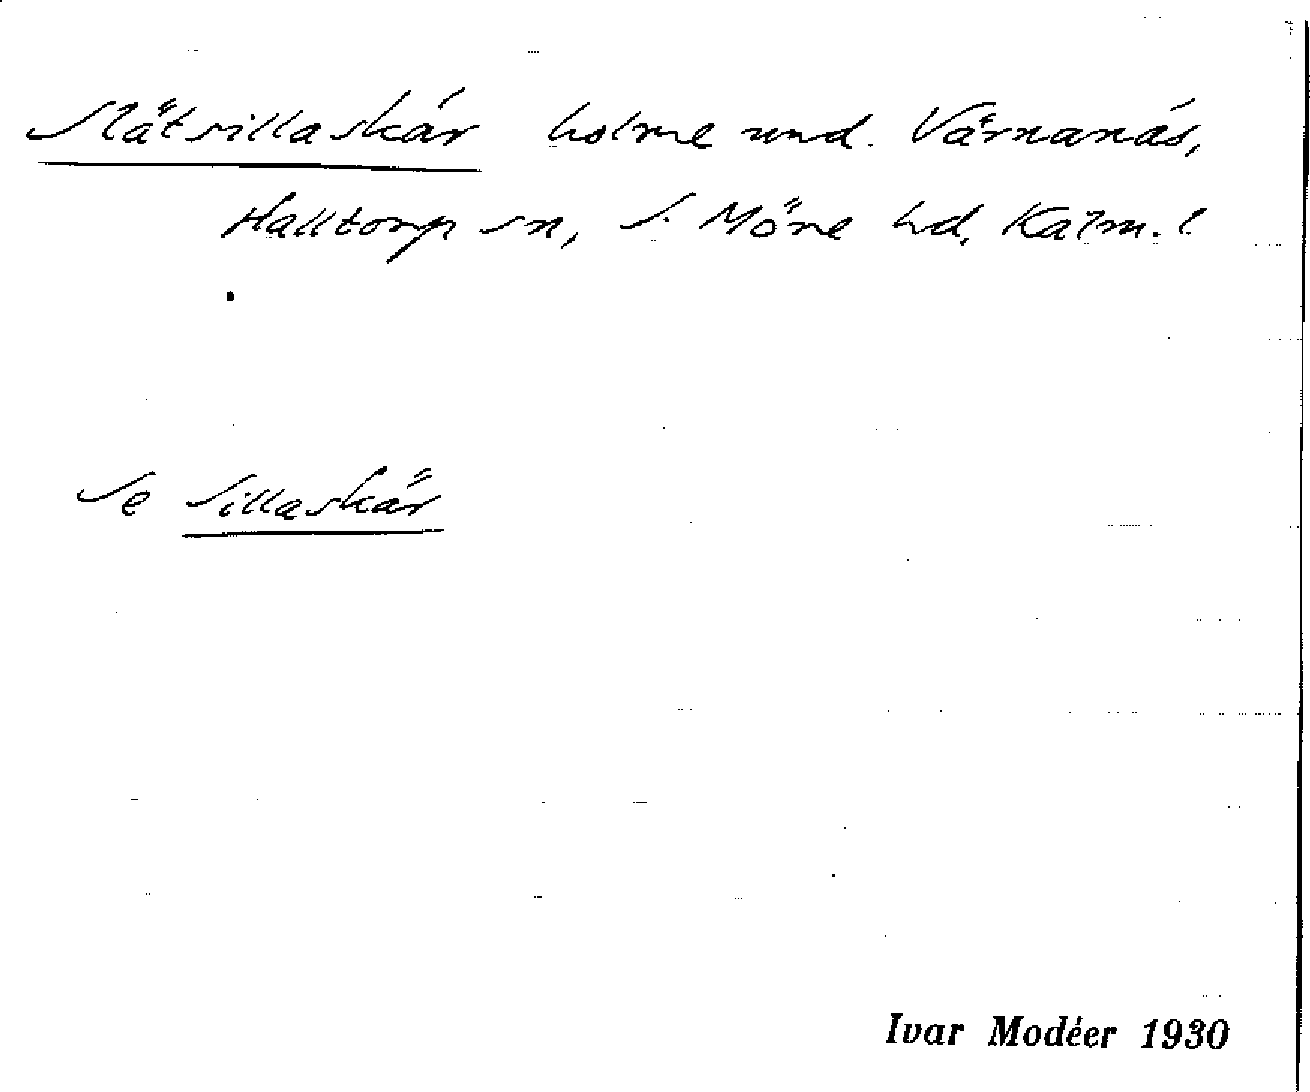 Slätsillaskär holme und. Värnanäs,
Halltorp sn, S. Möre hd, Kalm. l.
Se Sillaskär
Ivar Modéer 1930